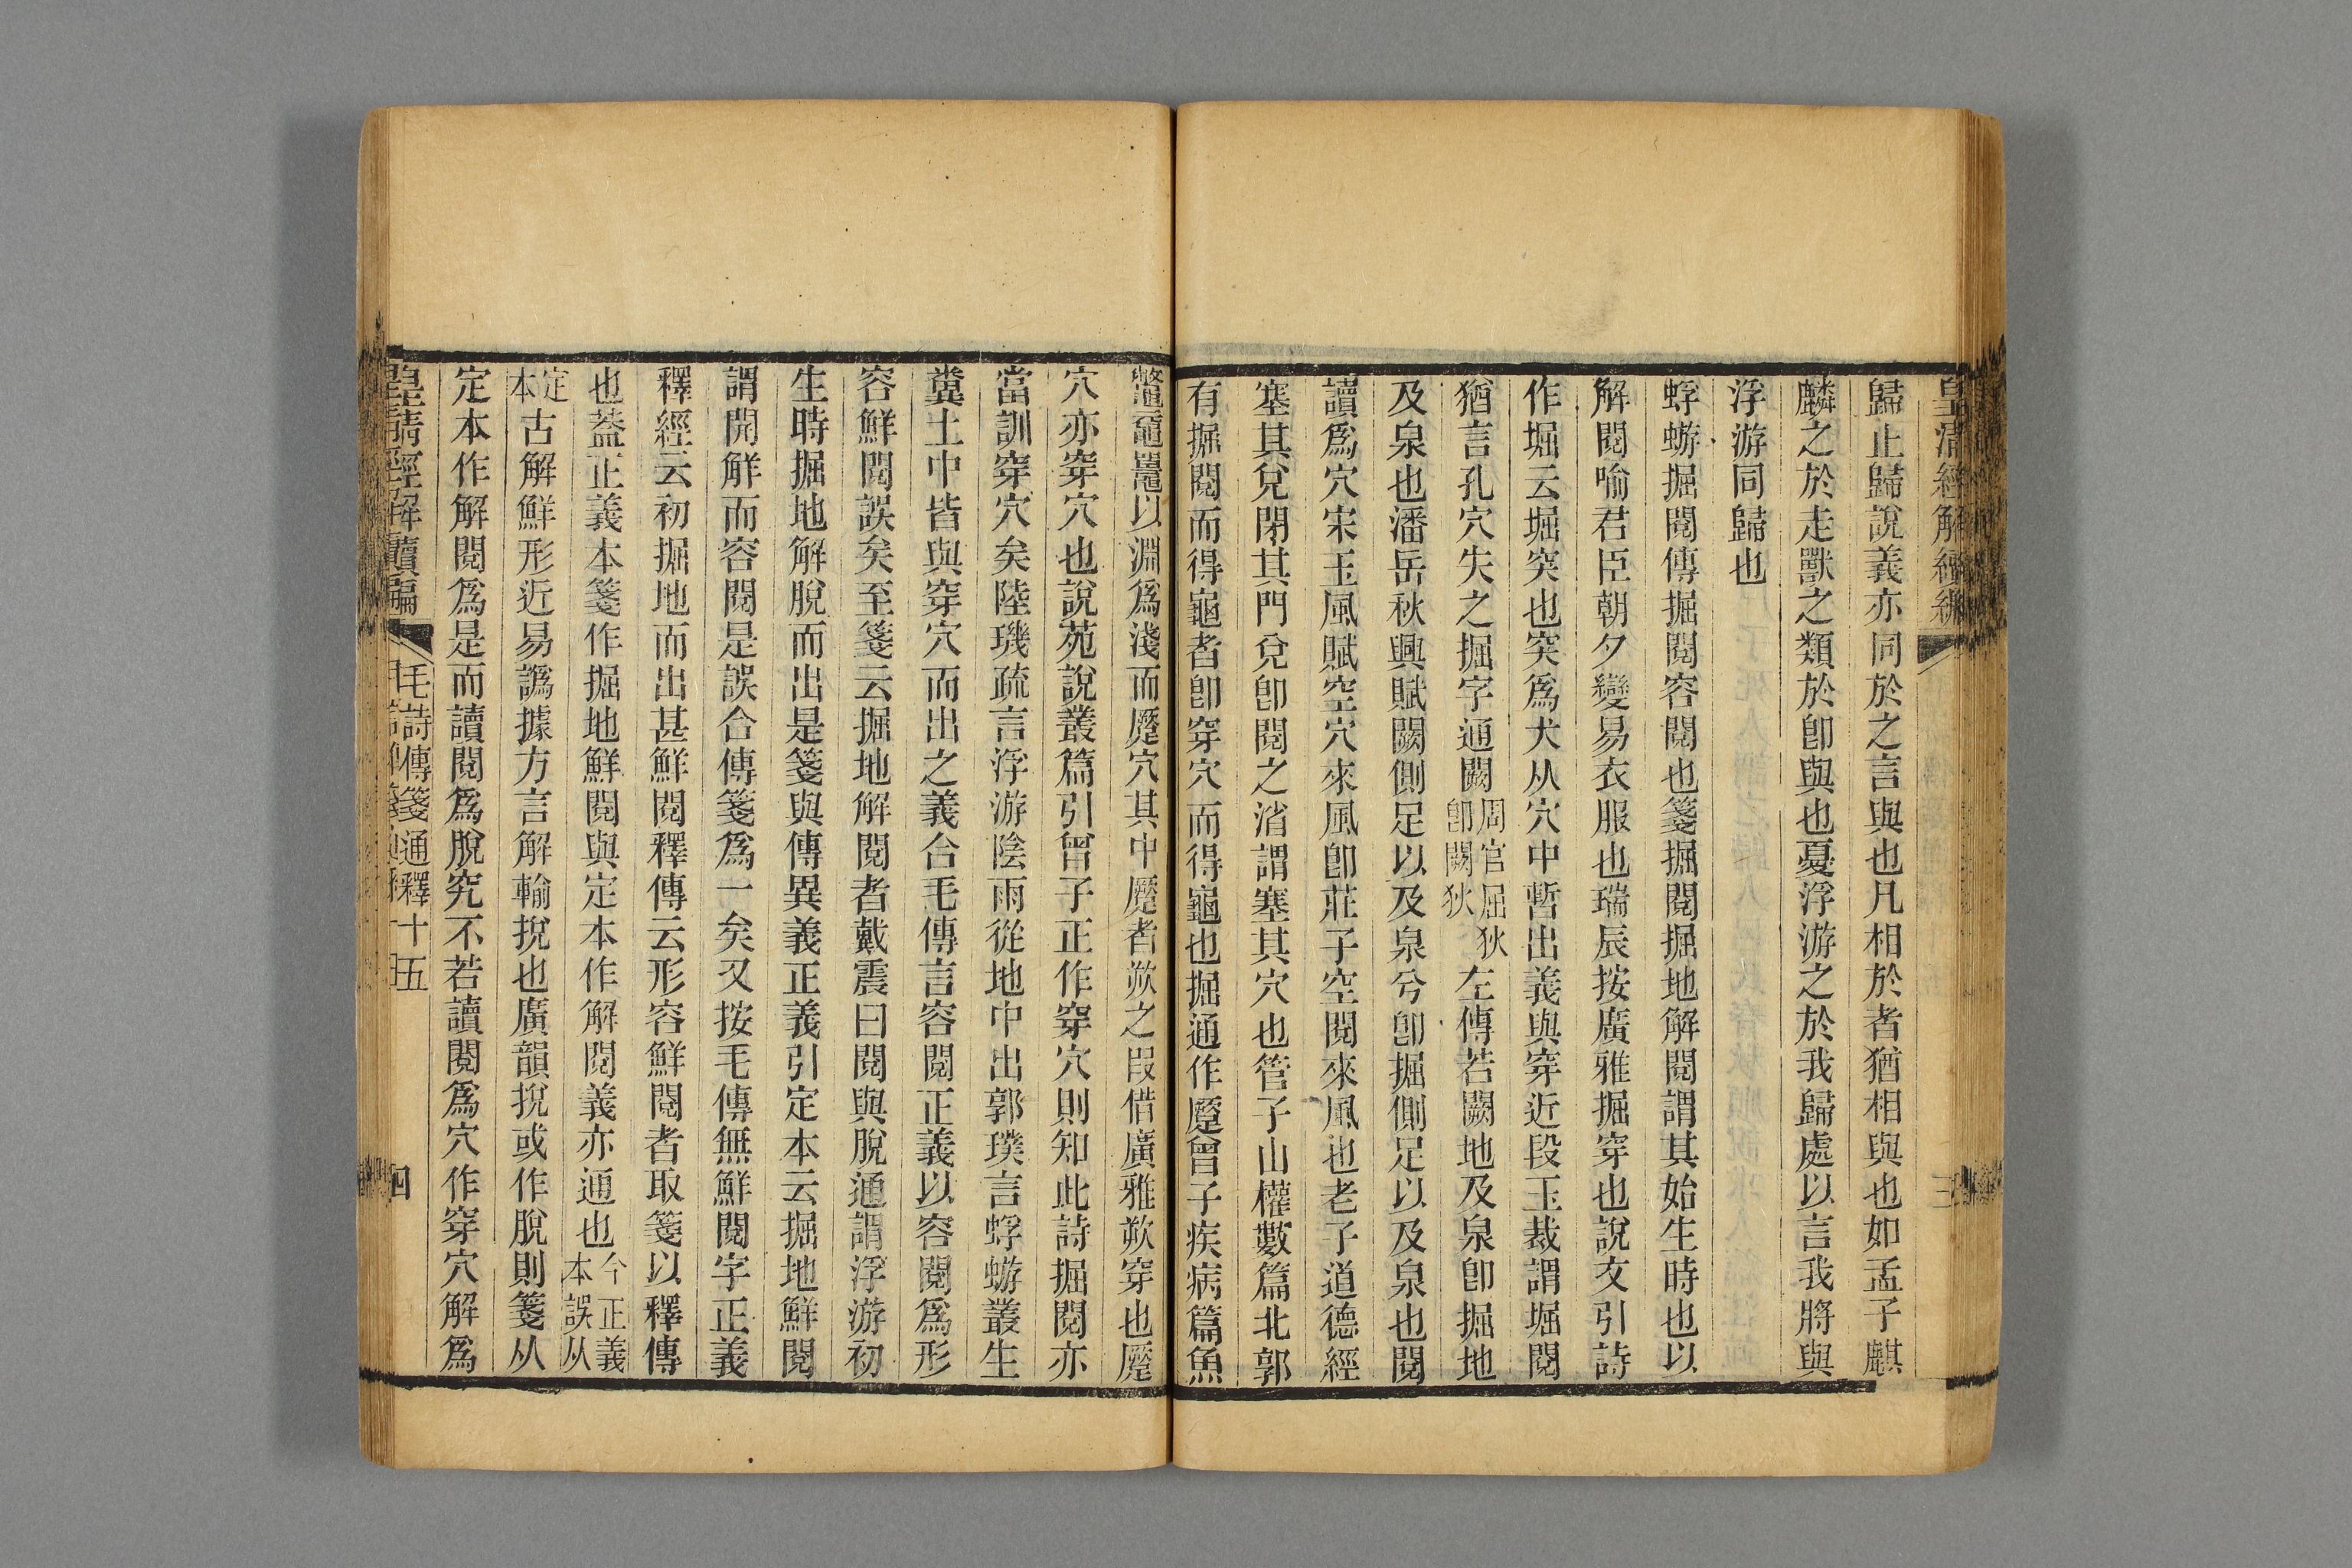 皇清經解續編
三
歸止歸說義亦同於之言與也凡相於者猶相與也如孟子麒
麟之於走獸之類於卽與也憂浮游之於我歸處以言我將與
浮游同歸也
蜉蝣掘閱傳掘閱容閱也箋掘閱掘地解閱謂其始生時也以
解閱喻君臣朝夕變易衣服也瑞辰按廣雅掘穿也說文引詩
作堀云堀突也突爲犬从穴中暫出義與穿近段玉裁謂堀閱
猶言孔穴失之掘字通闕周官屈狄卽闕狄左傳若闕地及泉卽掘地
及泉也潘岳秋興賦闕側足以及泉兮卽掘側足以及泉也閱
讀爲穴宋玉風賦空穴來風卽莊子空閱來風也老子道德經
塞其兌閉其門兌卽閱之渻謂塞其穴也管子山權數篇北郭
有掘閱而得龜者卽穿穴而得龜也掘通作蹷曾子疾病篇魚
鼈黿鼉以淵爲淺而蹷穴其中蹷者欮之叚借廣雅欮穿也蹷
穴亦穿穴也說苑說叢篇引曾子正作穿穴則知此詩掘閱亦
當訓穿穴矣陸璣疏言浮游陰雨從地中出郭璞言蜉蝣叢生
糞土中皆與穿穴而出之義合毛傳言容閱正義以容閱爲形
容鮮閱誤矣至箋云掘地解閱者戴震曰閱與脫通謂浮游初
生時掘地解脫而出是箋與傳異義正義引定本云掘地鮮閱
謂開解而容閱是誤合傳箋爲一矣又按毛傳無鮮閱字正義
釋經云初掘地而出甚鮮閱釋傳云形容鮮閱者取箋以釋傳
也葢正義本箋作掘地鮮閱與定本作解閱義亦通也今正義本誤从
定本古解鮮形近易譌據方言解輸捝也廣韻捝或作脫則箋从
定本作解閱爲是而讀閱爲脫究不若讀閱爲穴作穿穴解爲
皇清經解續編
毛詩傳箋通釋十五
四